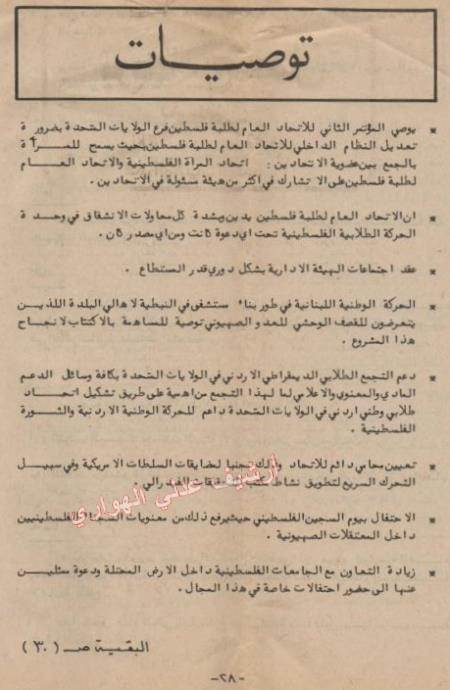 توصيات
* يوصي المؤتمر الثاني للاتحاد العام لطلبة فلسطين فرع الولايات المتحدة بضرورة
تعديل النظام الداخلي للاتحاد العام لطلبة فلسطين بحيث يسمح للمرأة
بالجمع بين عضوية الاتحادين : اتحاد المرأة الفلسطينية والاتحاد العام
لطلبة فلسطين على الا تشارك في اكثر من هيئة مسئولة في الاتحادين .
* ان الاتحاد العام لطلبة فلسطين يدين وبشدة كل محاولات الانشقاق في وحدة
الحركة الطلابية الفلسطينية تحت اي دعوة كانت ومن اي مصدر كان .
* عقد اجتماعات الهيئة الادارية بشكل دوري قدر المستطاع .
* الحركة الوطنية اللبنانية في طور بناء مستشفى في النبطية لاهالي البلدة اللذين
يتعرضون للقصف الوحشي للعدو الصهيوني توصية للمساهمة بالاكتتاب لانجاح
هذا المشروع .
* دعم التجمع الطلابي الديمقراطي الاردني في الولايات المتحدة بكافة وسائل الدعم
المادي والمعنوي والاعلامي لما لهذا التجمع من اهمية على طريق تشكيل اتحاد
طلابي وطني اردني في الولايات المتحدة داعم للحركة الوطنية الاردنية والثورة
الفلسطينية .
* تعيين محامي دائم للاتحاد وذلك تجنبا لمضايقات السلطات الامريكية وفي سبيل
التحرك السريع لتطويق نشاط
ارشيف علي الهواري
* الاحتفال بيوم السجين الفلسطيني حيث يرفع ذلك من معنويات السجناء الفلسطينيين
داخل المعتقلات الصهيونية .
* زيادة التعاون مع الجامعات الفلسطينية داخل الارض المحتلة ودعوة ممثلين
عنها الى حضور احتفالات خاصة في هذا المجال .
البقية ص ( ٣٠ )
-٢٨-